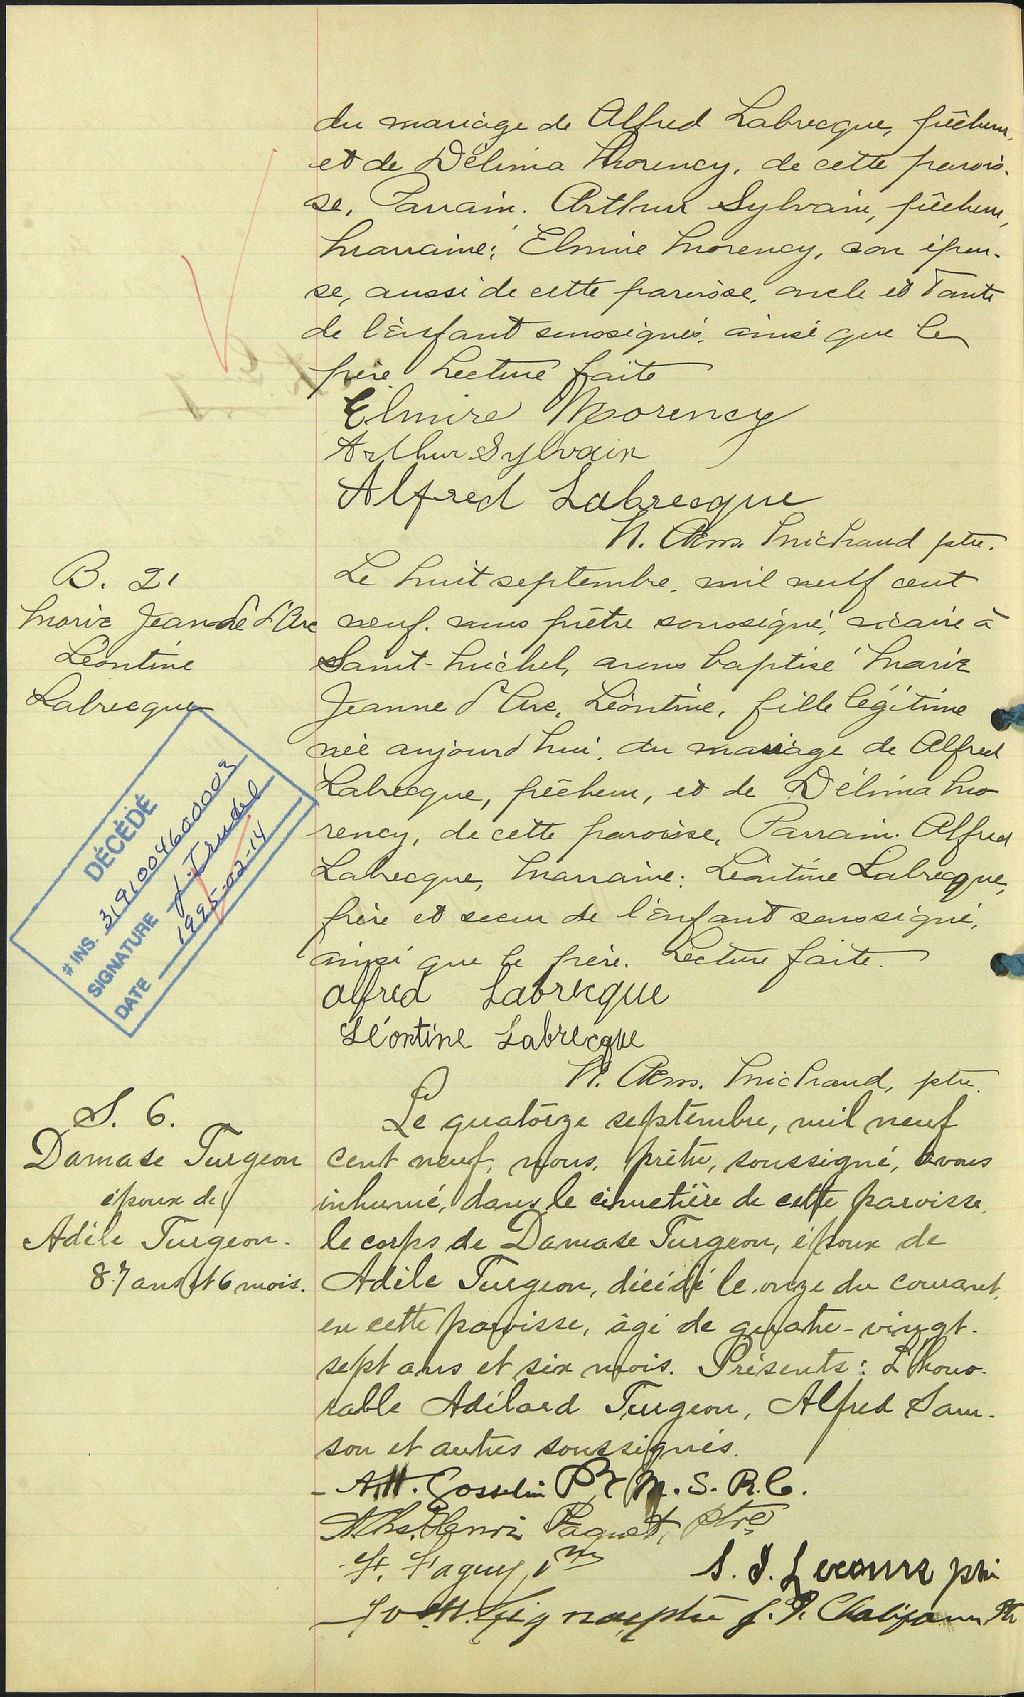 du mariage de Alfred Labrecque, pêcheur,
et de Délima Morency, de cette parois-
se, Parrain: Arthur Sylvain, pêcheur,
Marraine: Elmire Morency, son épou-
se, aussi de cette paroisse, oncle et tante
de l'enfant soussignés, ainsi que le
père. Lecture faite
Elmire Morency
Arthur Sylvain
Alfred Labrecque
N. Arm. Michaud ptre.
B. 21
Marie Jeanne d'Arc
Léontine
Labrecque
Le huit septembre, mil neuf cent
neuf, nous prêtre soussigné, vicaire à
Saint-Michel, avons baptisé Marie
Jeanne d'Arc, Léontine, fille légitime
née aujourd'hui, du mariage de Alfred
Labrecque, pêcheur, et de Délima Mo
rency, de cette paroisse, Parrain: Alfred
Labrecque, Marraine: Léontine Labrecque,
frère et soeur de l'enfant soussignés,
ainsi que le père. Lecture faite.
Alfred Labrecque
Léontine Labrecque
N. Arm. Michaud, ptre.
DÉCÉDÉ
# INS. 319100460003
SIGNATURE J. Trudel
DATE 1995-02-14
S. 6.
Damase Turgeon
époux de
Adèle Turgeon.
87 ans et 6 mois.
Le quatorze septembre, mil neuf
cent neuf, nous, prêtre, soussigné, avons
inhumé, dans le cimetière de cette paroisse,
le corps de Damase Turgeon, époux de
Adèle Turgeon, décédé le onze du courant,
en cette paroisse, âgé de quatre-vingt-
sept ans et six mois. Présents: L'hono-
rable Adélard Turgeon, Alfred Sam-
son et autres soussignés.
A. H. Gosselin Ptr M. S. R. C.
Ths. Henri Paquet, ptre
F. Faguy, 
S. J. Lecours ptre
ptre J. P.